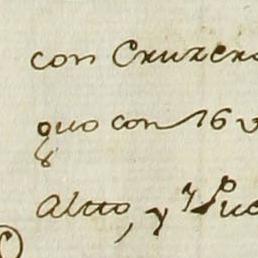 con Cruzero
quo con 16 v
Altto, y